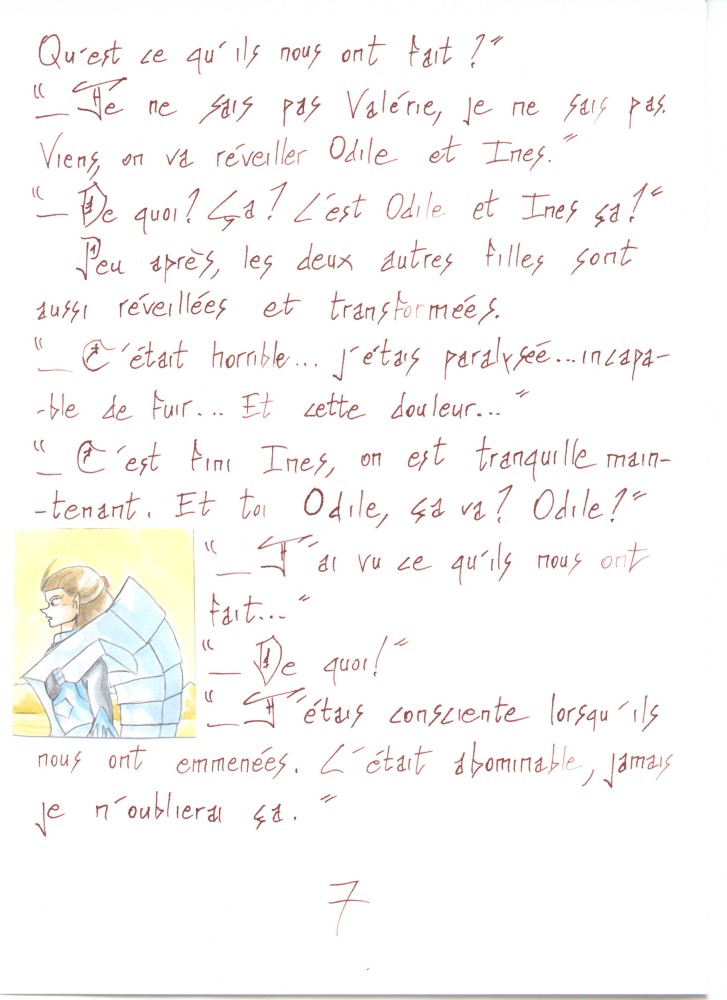 Qu'est ce qu'ils nous ont fait ?"
"_ Je ne sais pas Valérie, je ne sais pas.
Viens, on va réveiller Odile et Ines."
"_ De quoi? Ça? C'est Odile et Ines ça!"
Peu après, les deux autres filles sont
aussi réveillées et transformées.
"_ C'était horrible... j'étais paralysée...incapa-
-ble de fuir... Et cette douleur..."
"_ C'est fini Ines, on est tranquille main-
-tenant. Et toi Odile, ça va? Odile?"
"_ J'ai vu ce qu'ils nous ont
fait..."
"_ De quoi!"
"_ J'étais consciente lorsqu'ils
nous ont emmenées. C'était abominable, jamais
je n'oublierai ça."
7